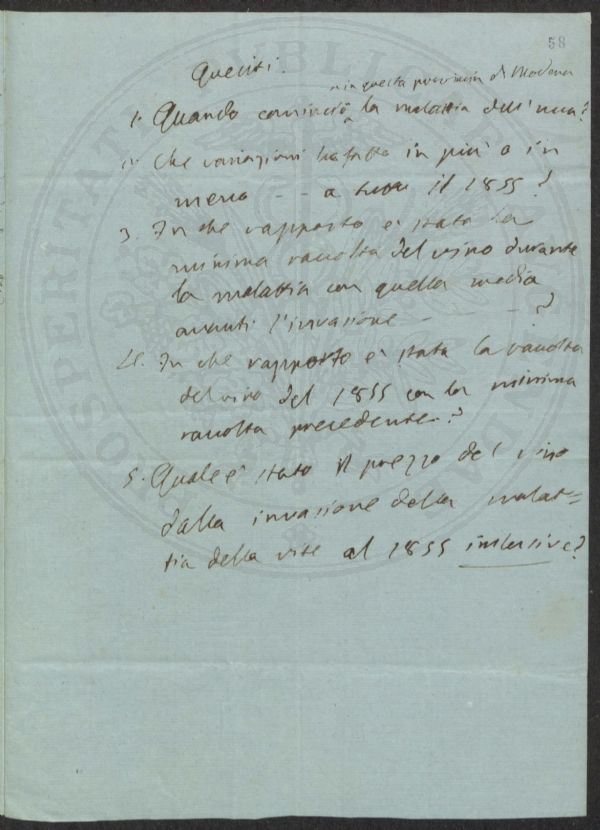 58
Quesiti.
in questa provincia di Modena
1. Quando cominciò la malattia dell'uva?
2. Che variazioni ha fatto in più o in
meno - - a tutto il 1855?
3. In che rapporto è stata la
minima raccolta del vino durante
la malattia con quella media
avanti l'invasione - - - ?
4. In che rapporto è stata la raccolta
del vino del 1855 con la minima
raccolta precedente?
5. Quale è stato il prezzo del vino
dalla invasione della malat=
tia della vite al 1855 inclusive?